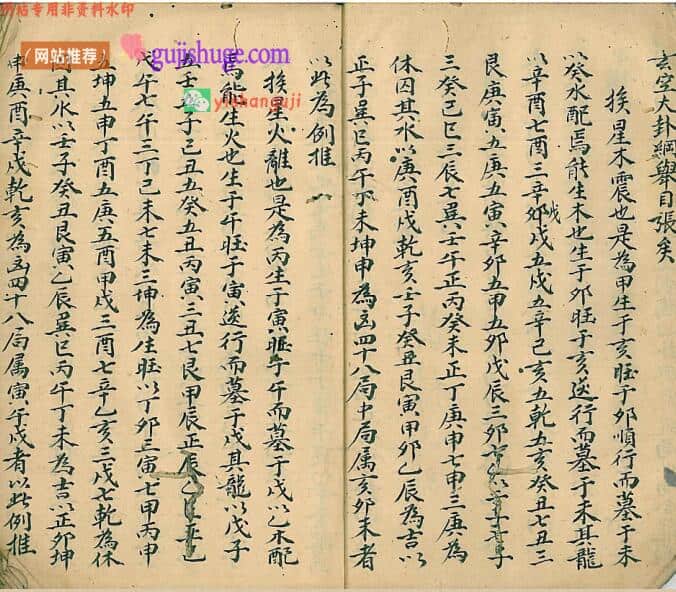 网站专用非资料水印
（网站推荐）
gujishuge.com
yishanguji
玄空大卦綱舉目張矣
挨星木震也是為甲生于亥旺于卯順行而墓于未
以癸水配焉能生木也生于卯旺于亥送行而墓于未其龍
以辛酉七酉三辛卯戌五戌五辛己亥五乾五亥癸丑七丑三
艮庚寅五庚五寅辛卯五甲五卯戊辰三卯
三癸己巳三辰七巽壬午正丙癸未正丁庚申七申三庚為
休囚其水以庚酉戌乾亥壬子癸丑艮寅甲卯乙辰為吉以
正子巽巳丙午丁未坤申為凶四十八局中局属亥卯未者
以此為例推
挨星火離也是為丙生于寅旺于午而墓于戌以乙木配
焉能生火也生于午旺于寅送行而墓于戌其龍以戊子
五壬 子己丑五癸五丑丙寅三丑七艮甲辰正辰
戊午七午三丁己未七未三坤為生旺以丁卯三寅七甲丙申
五坤五申丁酉五庚五酉甲戌三酉七辛乙亥三戌七乾為休
囚其水以壬子癸丑艮寅乙辰巽巳丙午丁未為吉以正卯坤
申庚酉辛戌乾亥為凶四十八局属寅午戌者以此例推